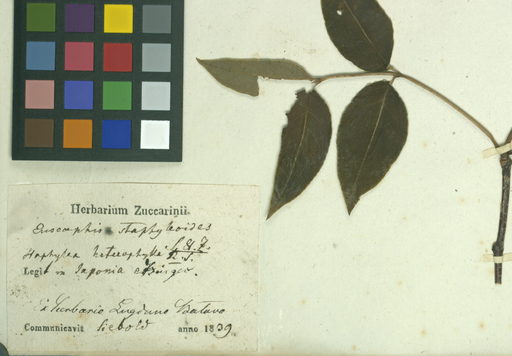 Herbarium Zuccarinii.
Euscaphis staphyleoides
Staphylea heterophylla
Legit in Japonia
Ex herbario Lugduno Batavo
Communicavit Siebold anno 1839